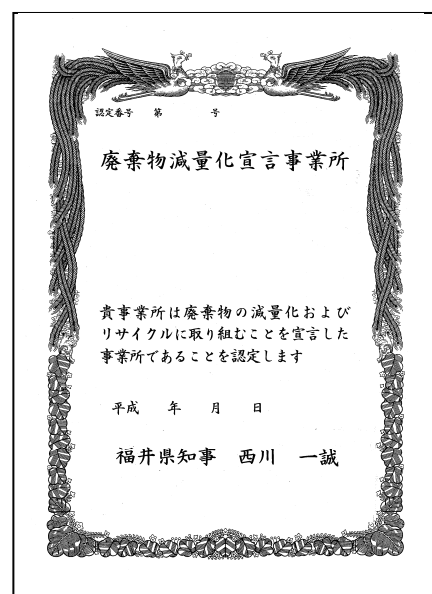 認定番号　第　　　　号
廃棄物減量化宣言事業所
貴事業所は廃棄物の減量化および
リサイクルに取り組むことを宣言した
事業所であることを認定します
平成　　年　　月　　日
福井県知事　西川　一誠